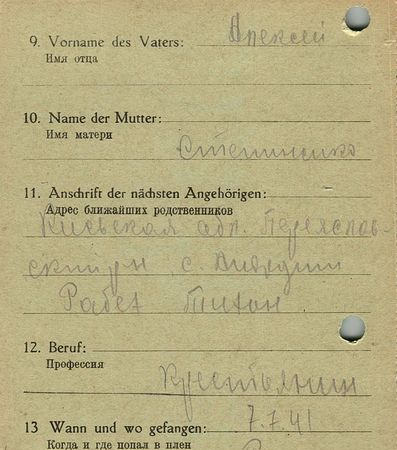 9. Vorname des Vaters: Алексей
Имя отца
10. Name der Mutter:
Имя матери
11. Anschrift der nächsten Angehörigen:
Адрес ближайших родственников
Киевская обл. Переяслов-
с.
Тихон
12. Beruf:
Профессия
Крестьянин
13 Wann und wo gefangen: 7.7.41
Когда и где попал в плен